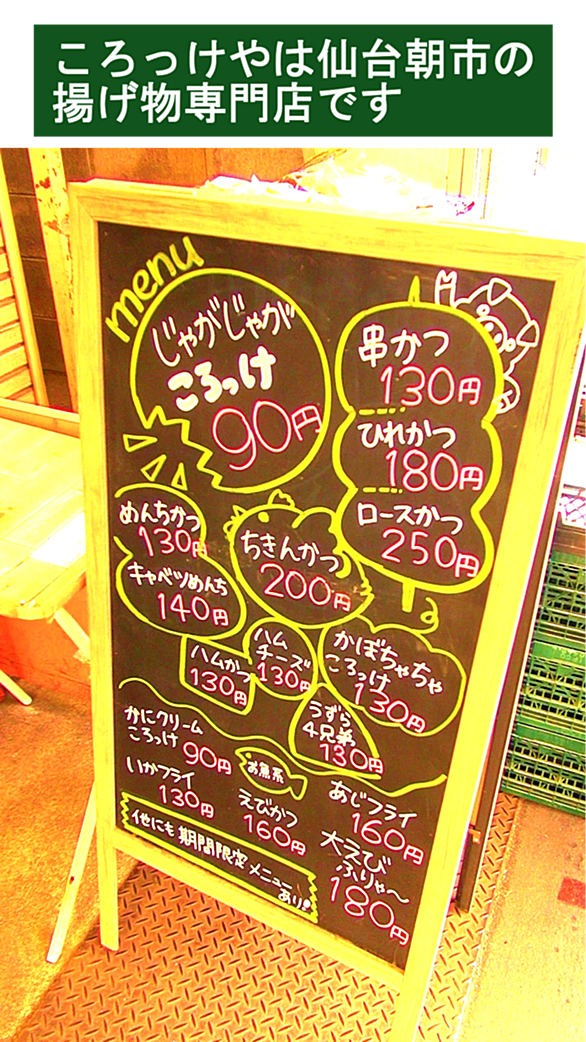 ころっけやは仙台朝市の
揚げ物専門店です
menu
じゃがじゃが
ころっけ
90円
串かつ
130円
ひれかつ
180円
ロースかつ
250円
めんちかつ
130円
キャベツめんち
140円
ちきんかつ
200円
ハムかつ
130円
ハム
チーズ
130円
かぼちゃちゃ
ころっけ
130円
うずら
4兄弟
130円
かにクリーム
ころっけ
90円
お魚系
いかフライ
130円
えびかつ
160円
あじフライ
160円
大えび
ふりゃ〜
180円
他にも期間限定メニュー
あり!